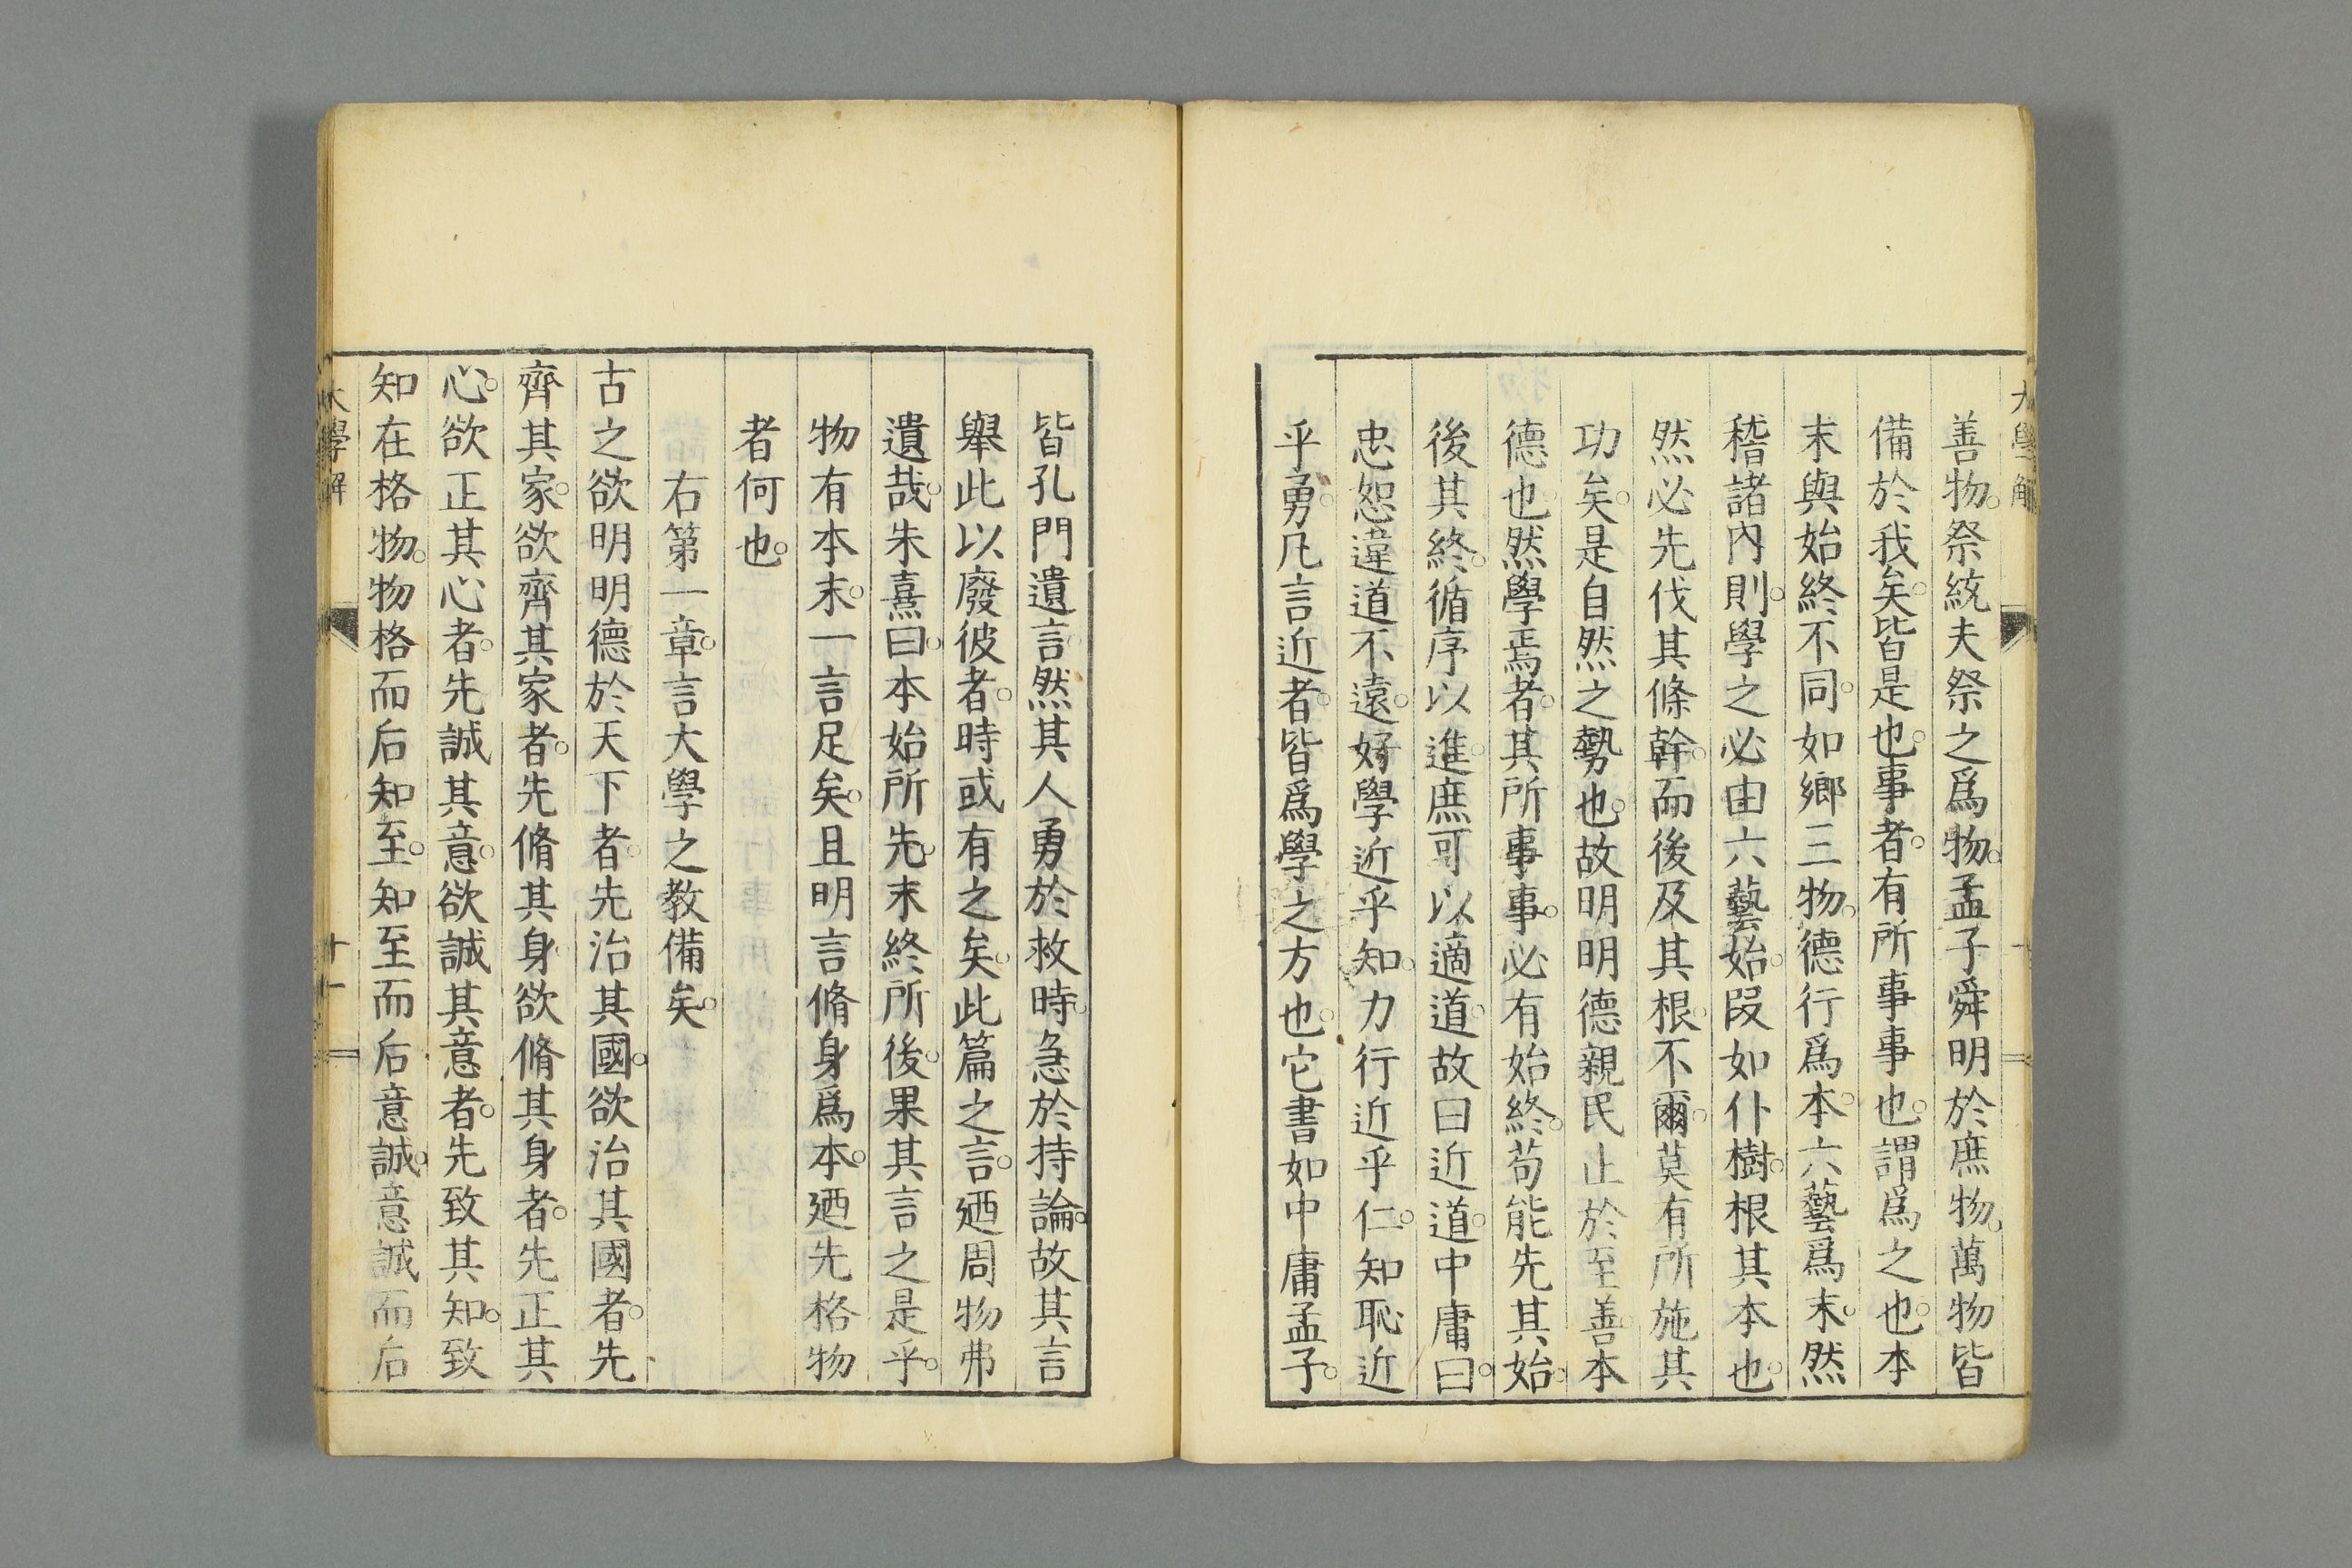 大學解
善物。祭統夫祭之爲物。孟子舜明於庶物。萬物皆
備於我矣。皆是也。事者。有所事事也。謂爲之也。本
末與始終不同。如鄉三物。德行爲本。六藝爲末。然
稽諸內則。學之必由六藝始。叚如仆樹。根其本也。
然必先伐其條幹。而後及其根。不爾。莫有所施其
功矣。是自然之勢也。故明明德親民止於至善。本
德也。然學焉者。其所事事。必有始終。苟能先其始。
後其終。循序以進。庶可以適道。故曰近道。中庸曰。
忠恕違道不遠。好學近乎知。力行近乎仁。知恥近
乎勇。凡言近者。皆爲學之方也。它書如中庸孟子。
皆孔門遺言。然其人勇於救時。急於持論。故其言
舉此以廢彼者。時或有之矣。此篇之言。廼周物弗
遺哉。朱熹曰。本始所先。末終所後。果其言之是乎。
物有本末。一言足矣。且明言脩身爲本。廼先格物
者何也。
右第一章。言大學之敎備矣。
古之欲明明德於天下者。先治其國。欲治其國者。先
齊其家。欲齊其家者。先脩其身。欲脩其身者。先正其
心。欲正其心者。先誠其意。欲誠其意者。先致其知。致
知在格物。物格而后知至。知至而后意誠。意誠而后
大學解
十二